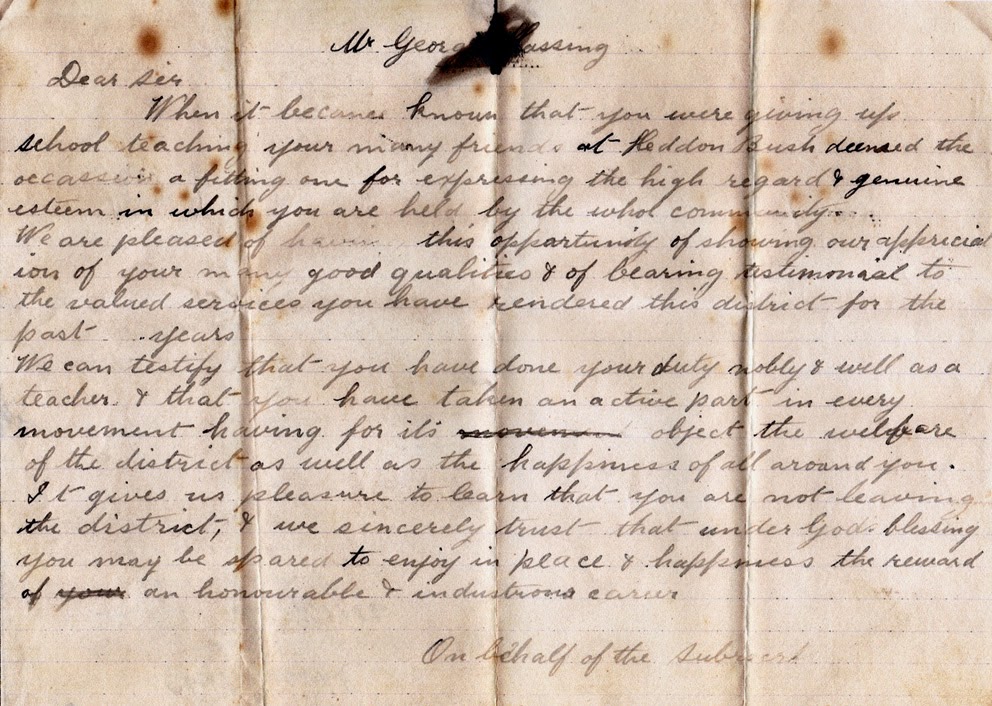 Mr George Massing
Dear Sir
When it became known that you were giving up
school teaching your many friends at Heddon Bush deemed the
occassion a fitting one for expressing the high regard & genuine
esteem in which you are held by the whol community.
We are pleased of having this opportunity of showing our appreciat
ion of your many good qualities & of bearing testimonial to
the valued services you have rendered this district for the
past years
We can testify that you have done your duty nobly & well as a
teacher & that you have taken an active part in every
movement having for its object the welfare
of the district as well as the happiness of all around you.
It gives us pleasure to learn that you are not leaving
the district, & we sincerely trust that under Gods blessing
you may be spared to enjoy in peace & happiness the reward
of your an honourable & industrous career
On behalf of the